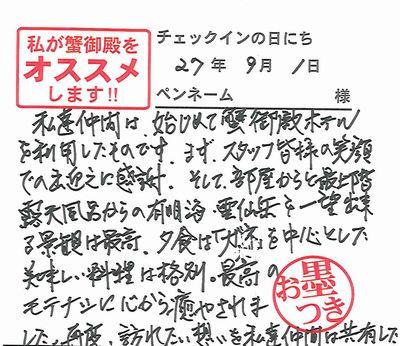 私が蟹御殿を
オススメ
します!!
チェックインの日にち
27年 9月 1日
ペンネーム 様
私達仲間は、始じめて蟹御殿ホテル
を利用したものです。まず、スタッフ皆様の笑顔
での出迎えに感謝。そして、部屋からと最上階
露天風呂からの有明海・雲仙岳を一望出来
る景観は最高。夕食は「ガネ」を中心とした
美味しい料理は格別。最高の
モテナシに心から癒やされま
した。再度、訪れたい想いを私達仲間は共有した
お墨つき